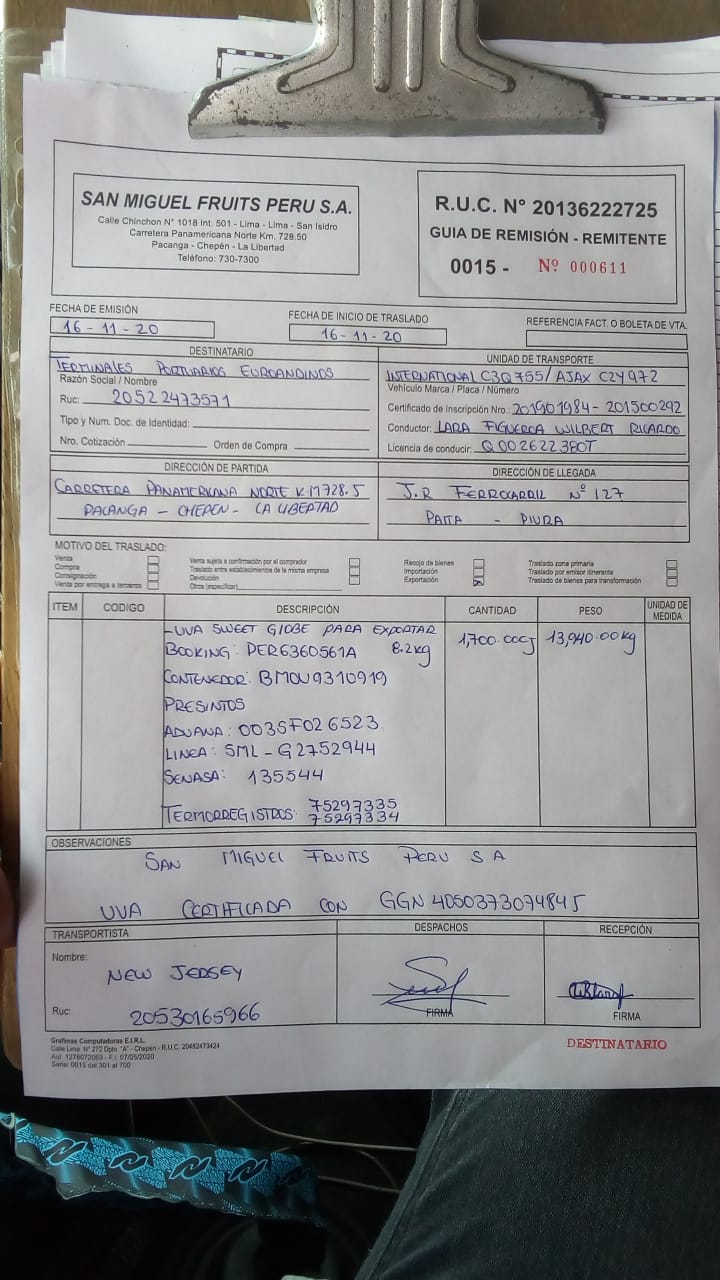 SAN MIGUEL FRUITS PERU S.A.
Calle Chinchon N° 1018 Int. 501 - Lima - Lima - San Isidro
Carretera Panamericana Norte Km. 728.50
Pacanga - Chepén - La Libertad
Teléfono: 730-7300
R.U.C. N° 20136222725
GUIA DE REMISIÓN - REMITENTE
0015 - Nº 000611
FECHA DE EMISIÓN
16-11-20
FECHA DE INICIO DE TRASLADO
16-11-20
REFERENCIA FACT. O BOLETA DE VTA.
DESTINATARIO
TERMINALES PORTUARIOS EUROANDINOS
Razón Social / Nombre
Ruc: 20522473571
Tipo y Num. Doc. de Identidad:
Nro. Cotización Orden de Compra
UNIDAD DE TRANSPORTE
INTERNATIONAL C3Q755/AJAX C2Y972
Vehículo Marca / Placa / Número
Certificado de Inscripción Nro.: 201901984-201500292
Conductor: LARA FIGUEROA WILBERT RICARDO
Licencia de conducir: Q00262238OT
DIRECCIÓN DE PARTIDA
CARRETERA PANAMERICANA NORTE KM728.5
PACANGA - CHEPEN - LA LIBERTAD
DIRECCIÓN DE LLEGADA
J.R FERROCARRIL Nº 127
PAITA - PIURA
MOTIVO DEL TRASLADO:
Venta
Compra
Consignación
Venta por entrega a terceros
Venta sujeta a confirmación por el comprador
Traslado entre establecimientos de la misma empresa
Devolución
Otros (especificar)
Recojo de bienes
Importación
Exportación
Traslado zona primaria
Traslado por emisor itinerante
Traslado de bienes para transformación
ITEM CODIGO DESCRIPCIÓN CANTIDAD PESO UNIDAD DE MEDIDA
-UVA SWEET GLOBE PARA EXPORTAR 1,700.00CJ 13,940.00kg
BOOKING: PER6360561A 8.2kg
CONTENEDOR: BMOU9310919
PRESINTOS
ADUANA: 0035F026523
LINEA: SML-G2752944
SENASA: 135544
TERMORREGISTROS: 75297335
75297334
OBSERVACIONES
SAN MIGUEL FRUITS PERU S A
UVA CERTIFICADA CON GGN 4050373074845
TRANSPORTISTA
Nombre:
NEW JERSEY
Ruc: 20530165966
DESPACHOS
FIRMA
RECEPCIÓN
FIRMA
Grafimas Computadoras E.I.R.L.
Calle Lima N° 272 Dpto. "A" - Chepén - R.U.C. 20482473424
Aut. 1278072063 - F.I. 07/05/2020
Serie: 0015 del 301 al 700
DESTINATARIO